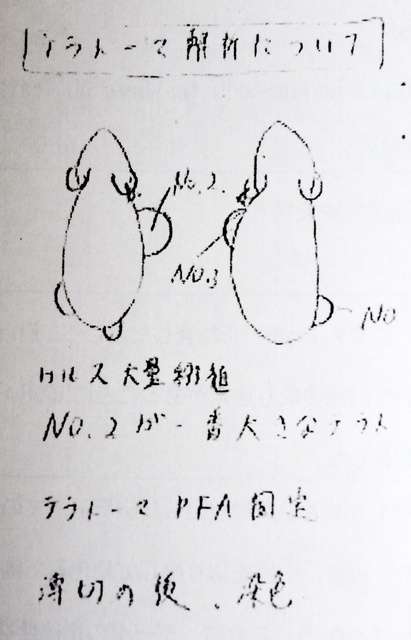 テラトーマ解析について
No.2.
No.3
No
大量
No.2が一番大きなテラト
テラトーマ PFA 固定
薄切の後、染色